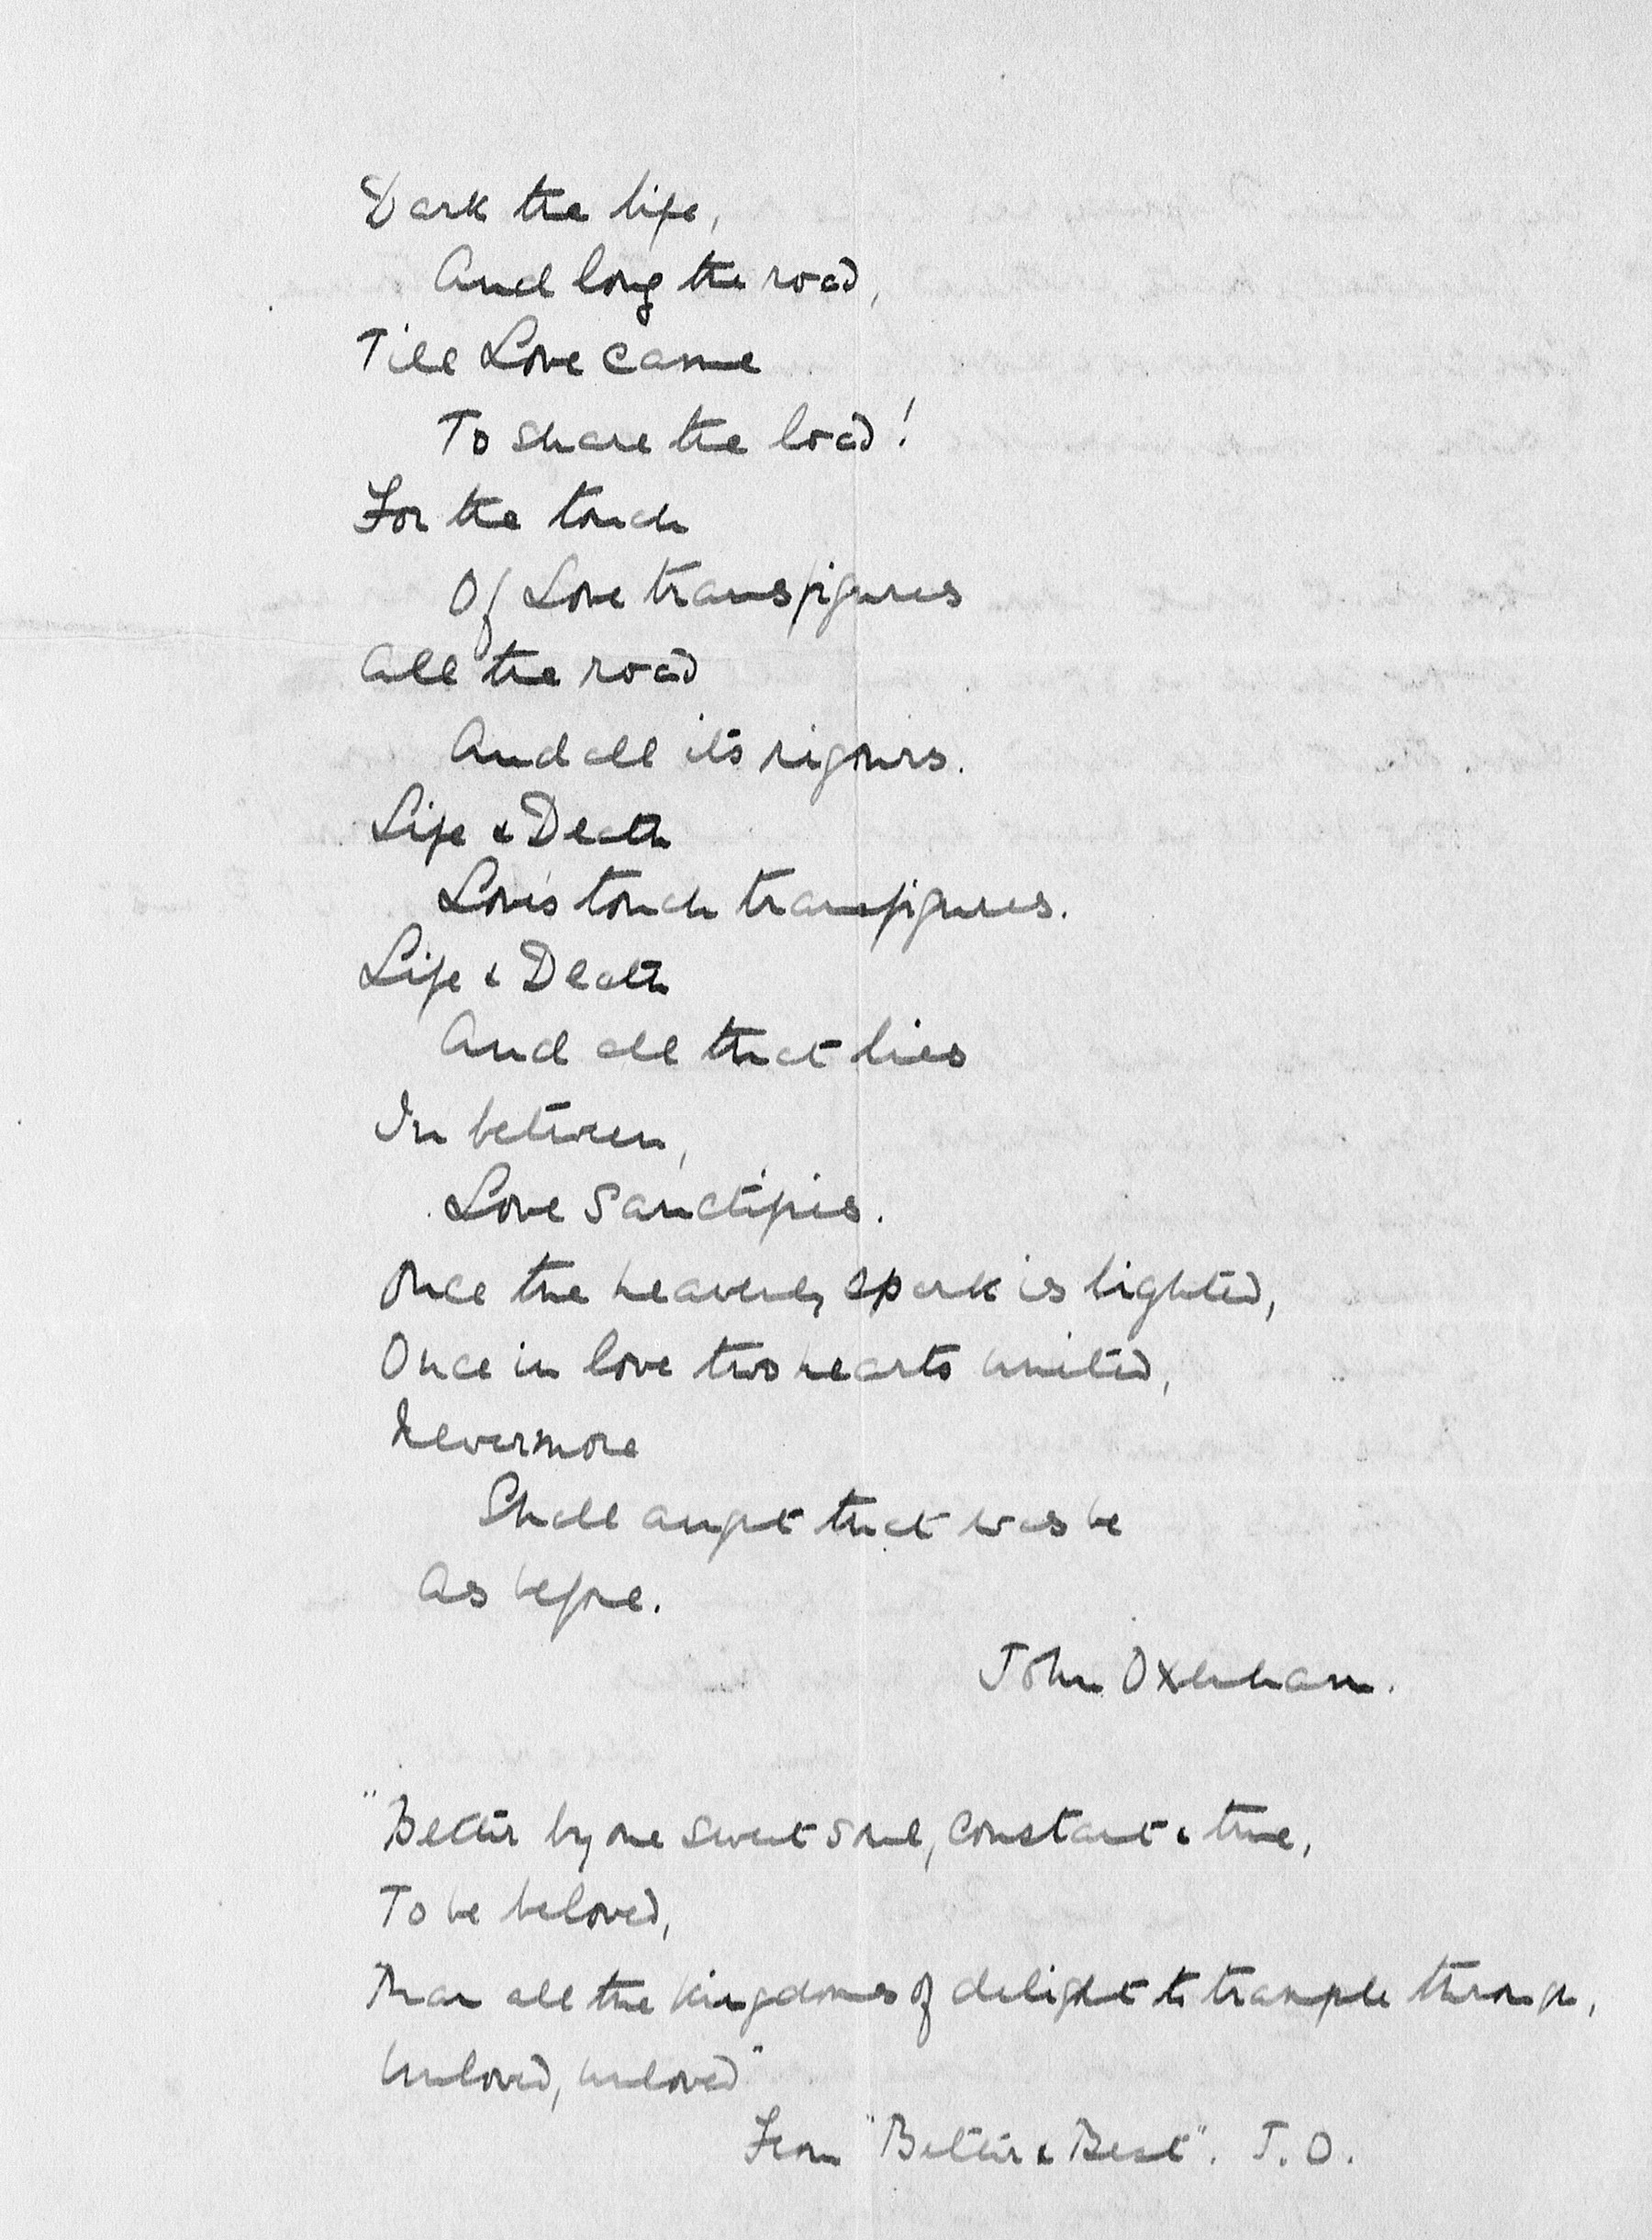 Dark the life,
And long the road,
Till Love came
To share the load!
For the touch
Of Love transfigures
All the road
And all its rigours.
Life & Death
Love's touch transfigures.
Life & Death
And all that lies
In between,
Love sanctifies.
Once the heavenly spark is lighted,
Once in love two hearts united,
Nevermore
Shall aught that was be
As before.
John Oxenham.
"Better by one sweet soul, constant & true,
To be beloved,
Than all the kingdoms of delight to trample through,
Unloved, unloved"
From "Better & Best". J.O.